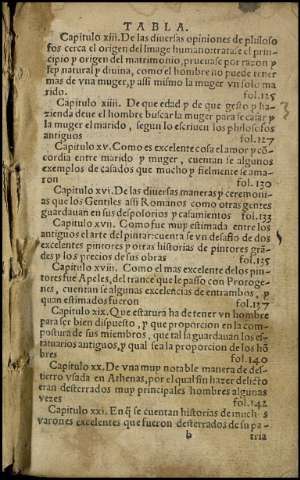 TABLA.
Capitulo xiii. De las diuersas opiniones de philoso
fos cerca el origen del linage humano: tratase el prin-
cipio y origen del matrimonio, prueuase por razon y
ley natural y diuina, como el hombre no puede tener
mas de vna muger, y assi mismo la muger vn solo ma
rido. fol.125
Capitulo xiiii. De que edad y de que gesto y ha-
zienda deue el hombre buscar la muger para se casar y
la muger el marido, segun lo escriuen los philosofos
antiguos fol.127
Capitulo xv. Como es excelente cosa el amor y cō-
cordia entre marido y muger, cuentan se algunos
exemplos de casados que mucho y fielmente se ama-
ron fol.130
Capitulo xvi. De las diuersas maneras y ceremoni-
as que los Gentiles assi Romanos como otras gentes
guardauan en sus desposorios y casamientos fol.133
Capitulo xvii. Como fue muy estimada entre los
antiguos el arte del pintar: cuenta se vn desafio de dos
excelentes pintores y otras historias de pintores grā-
des y los precios de sus obras fol.135
Capitulo xviii. Como el mas excelente de los pin-
tores fue Apeles, del trance que le passo con Protoge-
nes, cuentan se algunas excelencias de entrambos, y
quan estimados fueron fol.137
Capitulo xix. Que estatura ha de tener vn hombre
para ser bien dispuesto, y que proporcion en la com-
postura de sus miembros, que tal la guardauan los es-
tatuarios antiguos, y qual sea la proporcion de los hō
bres fol.140
Capitulo xx. De vna muy notable manera de des-
tierro vsada en Athenas, por el qual sin hazer delicto
eran desterrados muy principales hombres algunas
vezes fol.142
Capitulo xxi. En q̄ se cuentan historias de muchos
varones excelentes que fueron desterrados de su pa-
b tria